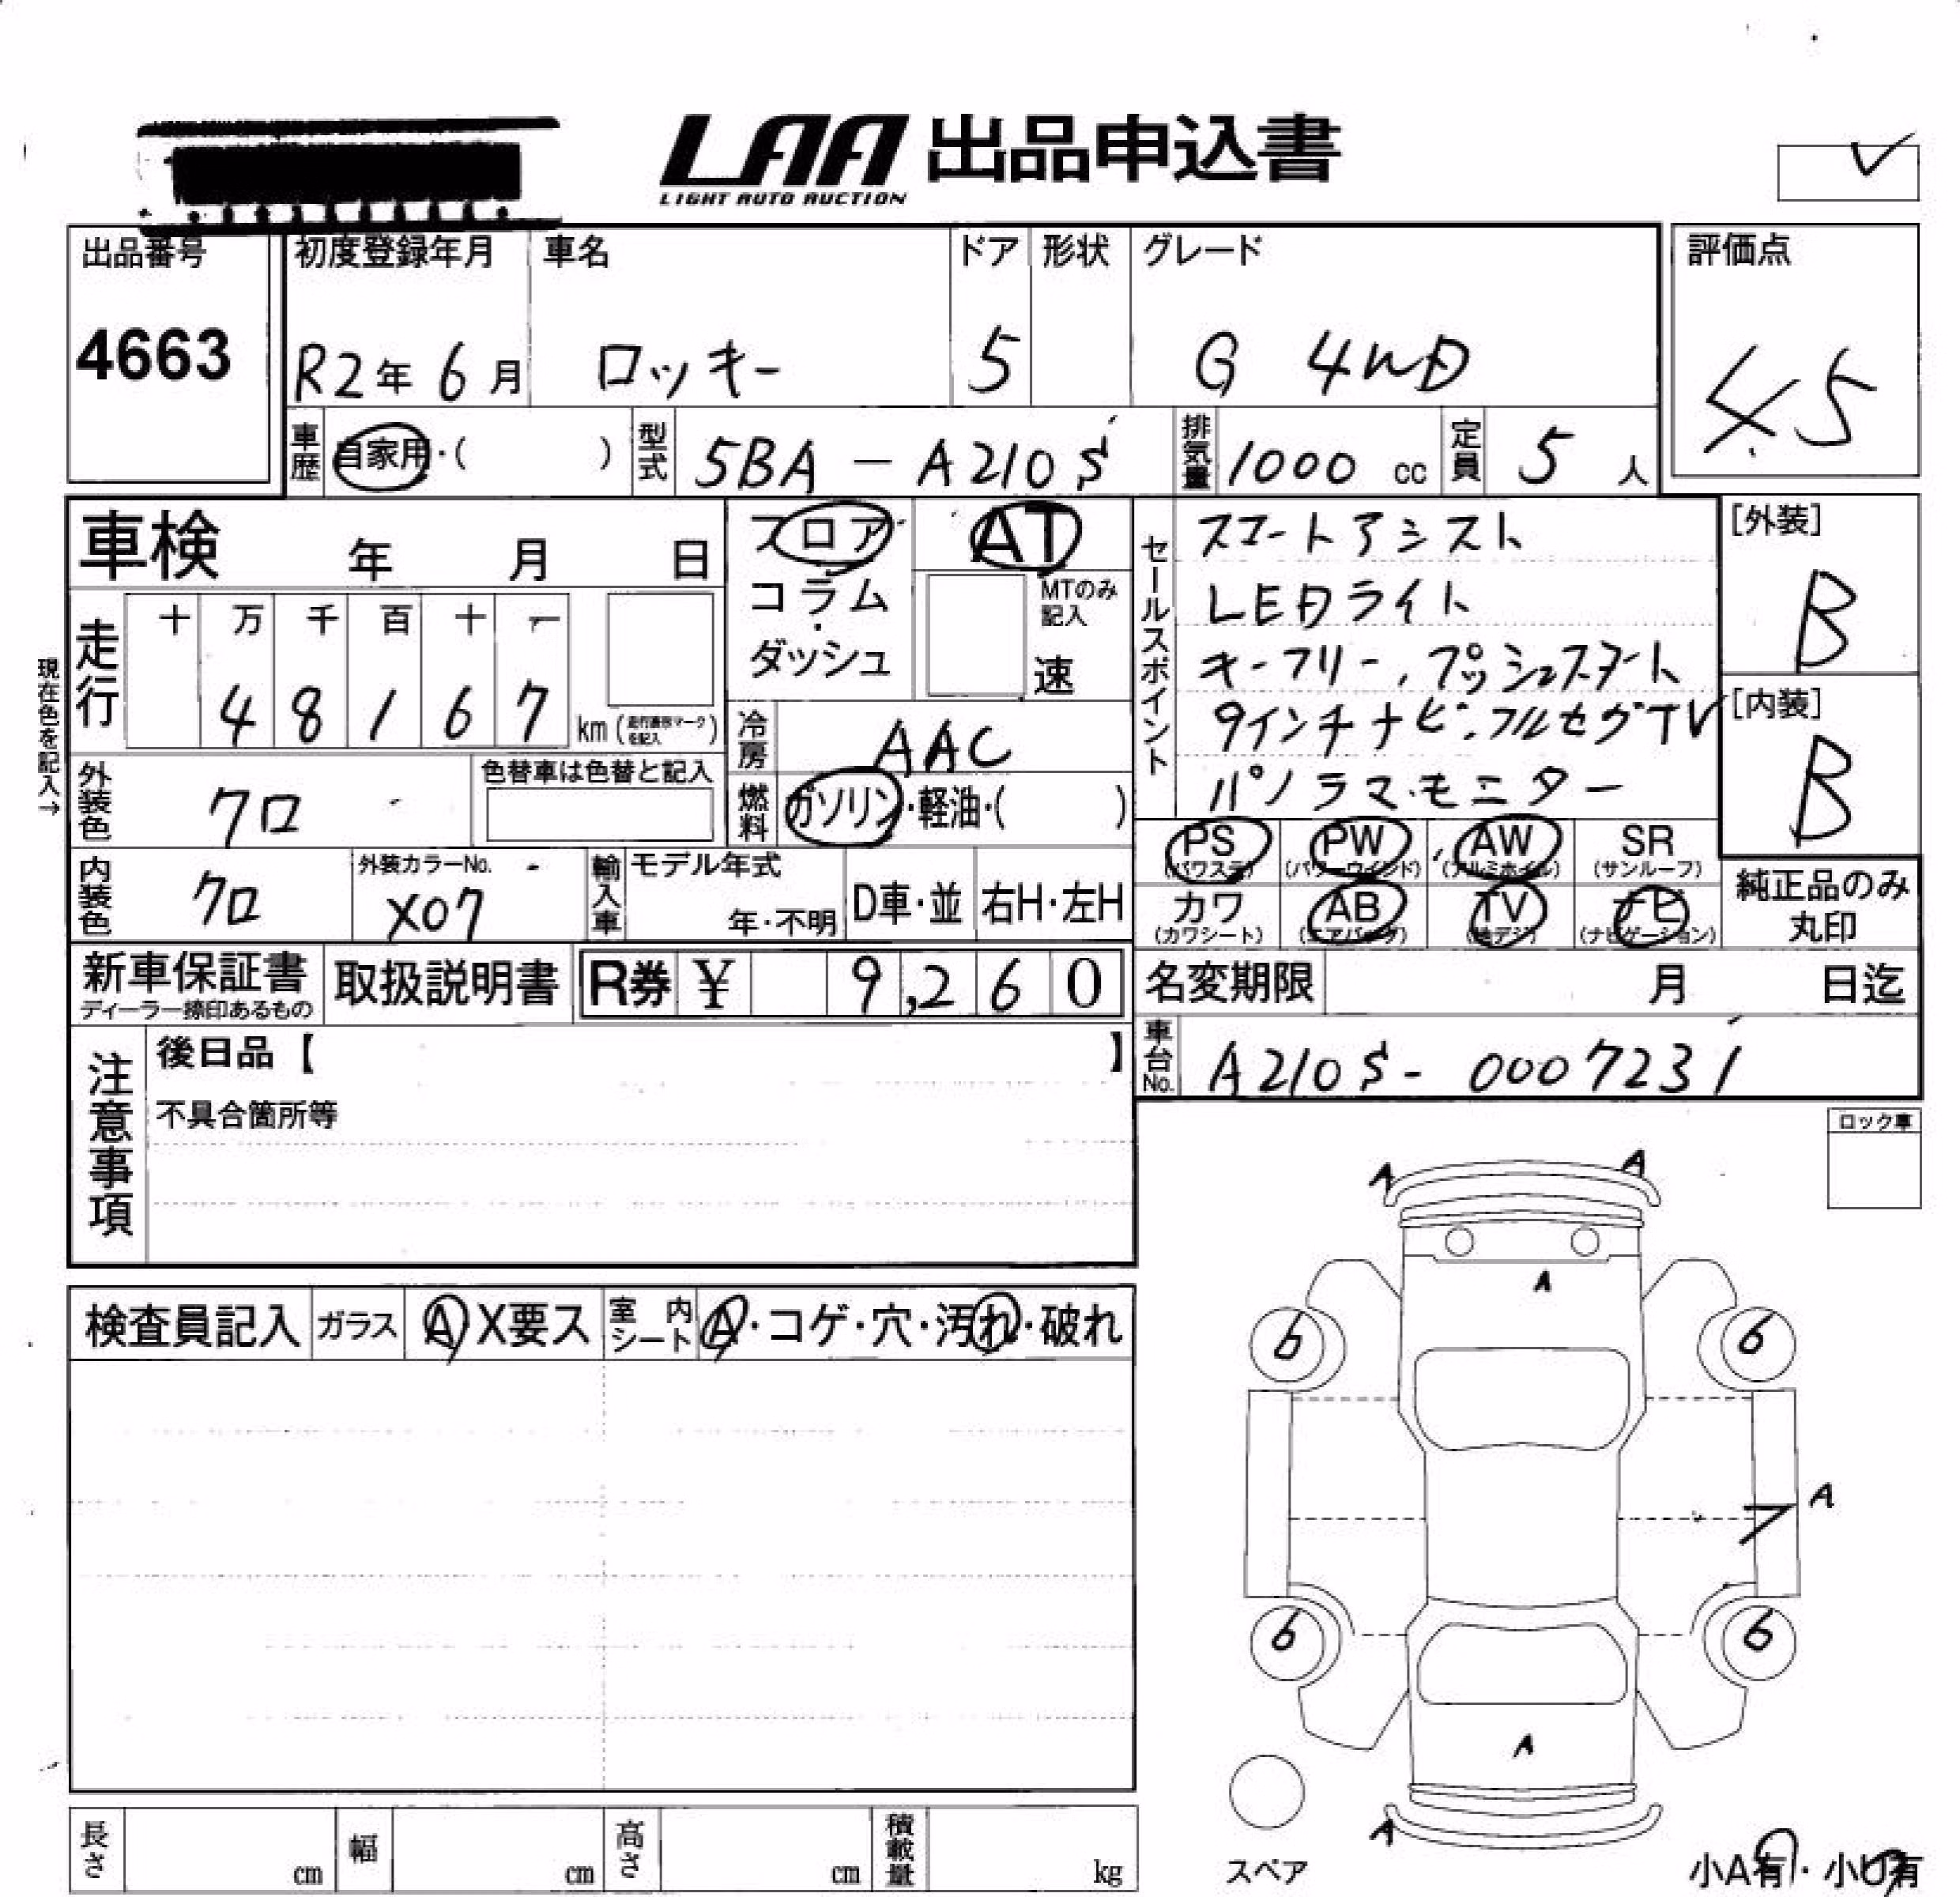 LAA 出品申込書
LIGHT AUTO AUCTION
出品番号 初度登録年月 車名 ドア 形状 グレード 評価点
4663 R2年 6月 ロッキー 5 G 4WD 4.5
車歴 自家用・( ) 型式 5BA-A210S 排気量 1000 cc 定員 5 人
車検 年 月 日
フロア AT
コラム MTのみ記入
ダッシュ 速
セールスポイント
スマートアシスト
LEDライト
キーフリー、プッシュスタート
9インチナビ・フルセグTV
パノラマモニター
[外装]
B
[内装]
B
現在色を記入→
走行 十 万 千 百 十 一
4 8 1 6 7 km
冷房 AAC
外装色 クロ 色替車は色替と記入
燃料 ガソリン・軽油・( )
内装色 クロ 外装カラーNo. X07
輸入車 モデル年式 年・不明 D車・並 右H・左H
PS (パワステ) PW (パワーウインド) AW (アルミホイル) SR (サンルーフ)
カワ (カワシート) AB (エアバッグ) TV (地デジ) ナビ (ナビゲーション)
純正品のみ
丸印
新車保証書 取扱説明書 R券 ¥ 9,260
ディーラー捺印あるもの
名変期限 月 日迄
車台No. A210S-0007231
注意事項
後日品【 】
不具合箇所等
ロック車
検査員記入 ガラス A X要ス 室内シート A・コゲ・穴・汚れ・破れ
A A
A
6 6
A
7
6 6
A
A
スペア
小A有・小U有
長さ cm 幅 cm 高さ cm 積載量 kg